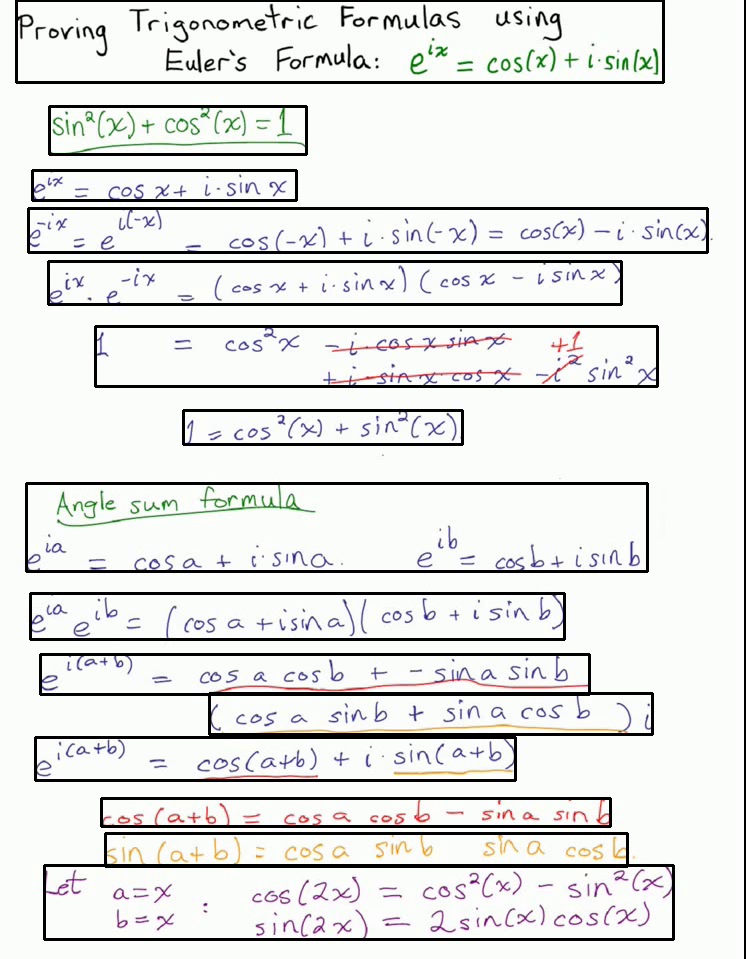 Proving Trigonometric Formulas using
Euler's Formula: e^{ix} = cos(x) + i·sin(x)
sin²(x) + cos²(x) = 1
e^{ix} = cos x + i·sin x
e^{-ix} = e^{i(-x)} = cos(-x) + i·sin(-x) = cos(x) - i·sin(x).
e^{ix}·e^{-ix} = (cos x + i·sin x)(cos x - i sin x)
1 = cos²x - i·cos x sin x +1
+ i·sin x cos x - i² sin²x
1 = cos²(x) + sin²(x)
Angle sum formula
e^{ia} = cos a + i·sin a. e^{ib} = cos b + i sin b
e^{ia} e^{ib} = (cos a + i sin a)(cos b + i sin b)
e^{i(a+b)} = cos a cos b + - sin a sin b
(cos a sin b + sin a cos b) i
e^{i(a+b)} = cos(a+b) + i·sin(a+b)
cos(a+b) = cos a cos b - sin a sin b
sin(a+b) = cos a sin b sin a cos b.
Let a=x : cos(2x) = cos²(x) - sin²(x)
b=x sin(2x) = 2sin(x)cos(x)